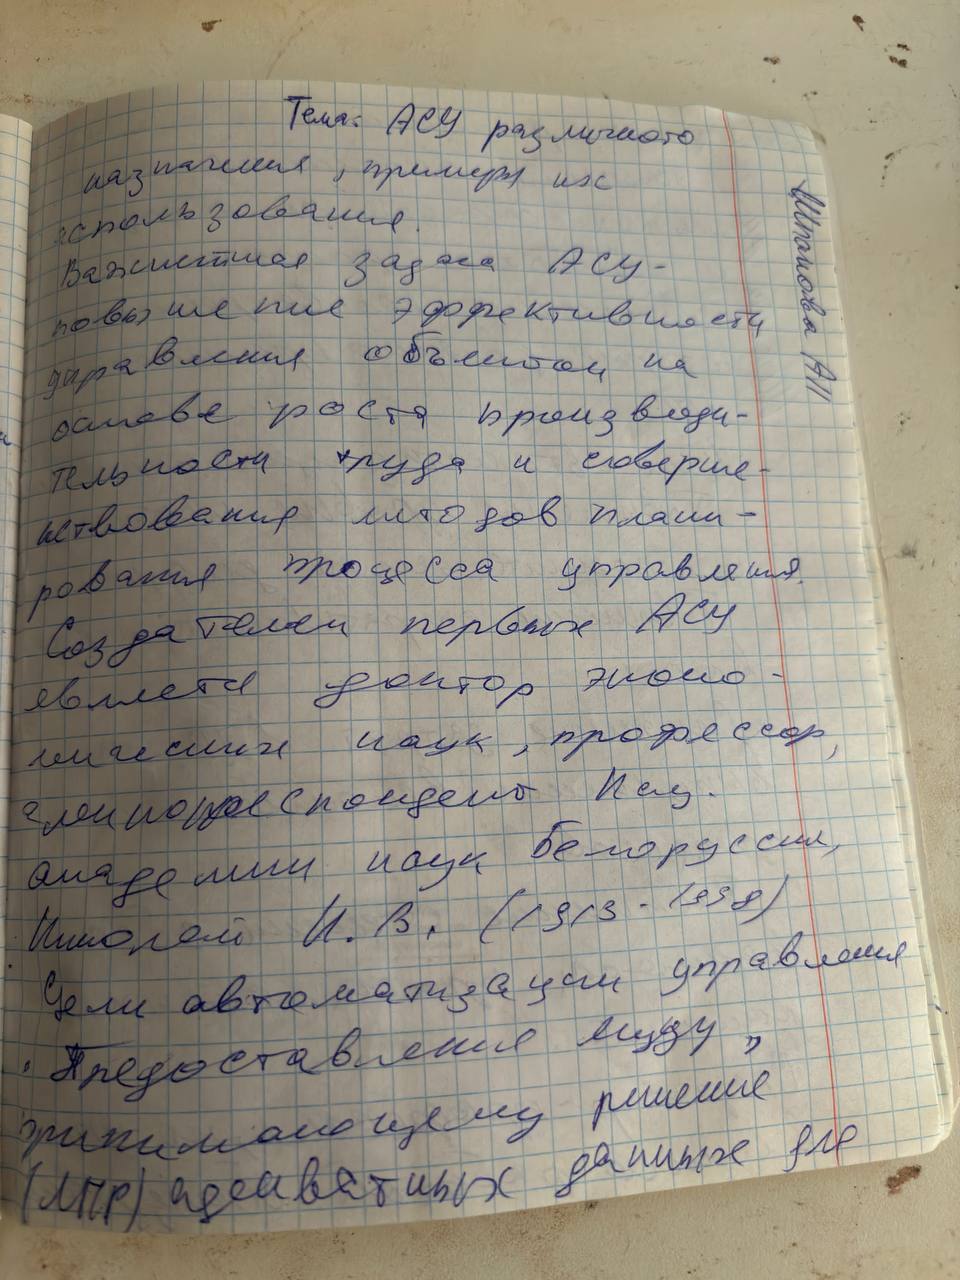 Тема: АСУ различного
назначения, примеры их
использования.
Важнейшая задача АСУ-
повышение эффективности
управления объектом на
основе роста производи-
тельности труда и соверше-
нствования методов плани-
рования процесса управления.
Создателем первых АСУ
является доктор эконо-
мических наук, профессор,
членкорреспондент Нац.
академии наук Белоруссии,
Николай И. В. (1913-1998)
Цели автоматизации управления
• Предоставления лицу,
принимающему решение
(ЛПР) адекватных данных для
Шпанова АП